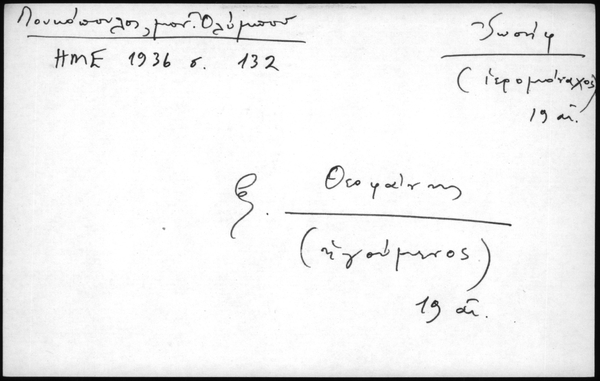 Λουκόπουλος, μον. Ὀλύμπου
ΗΜΕ 1936 σ. 132
Ἰωσήφ
(ἱερομόναχος)
19 αἰ.
Θεοφάνης
(ἡγούμενος)
19 αἰ.